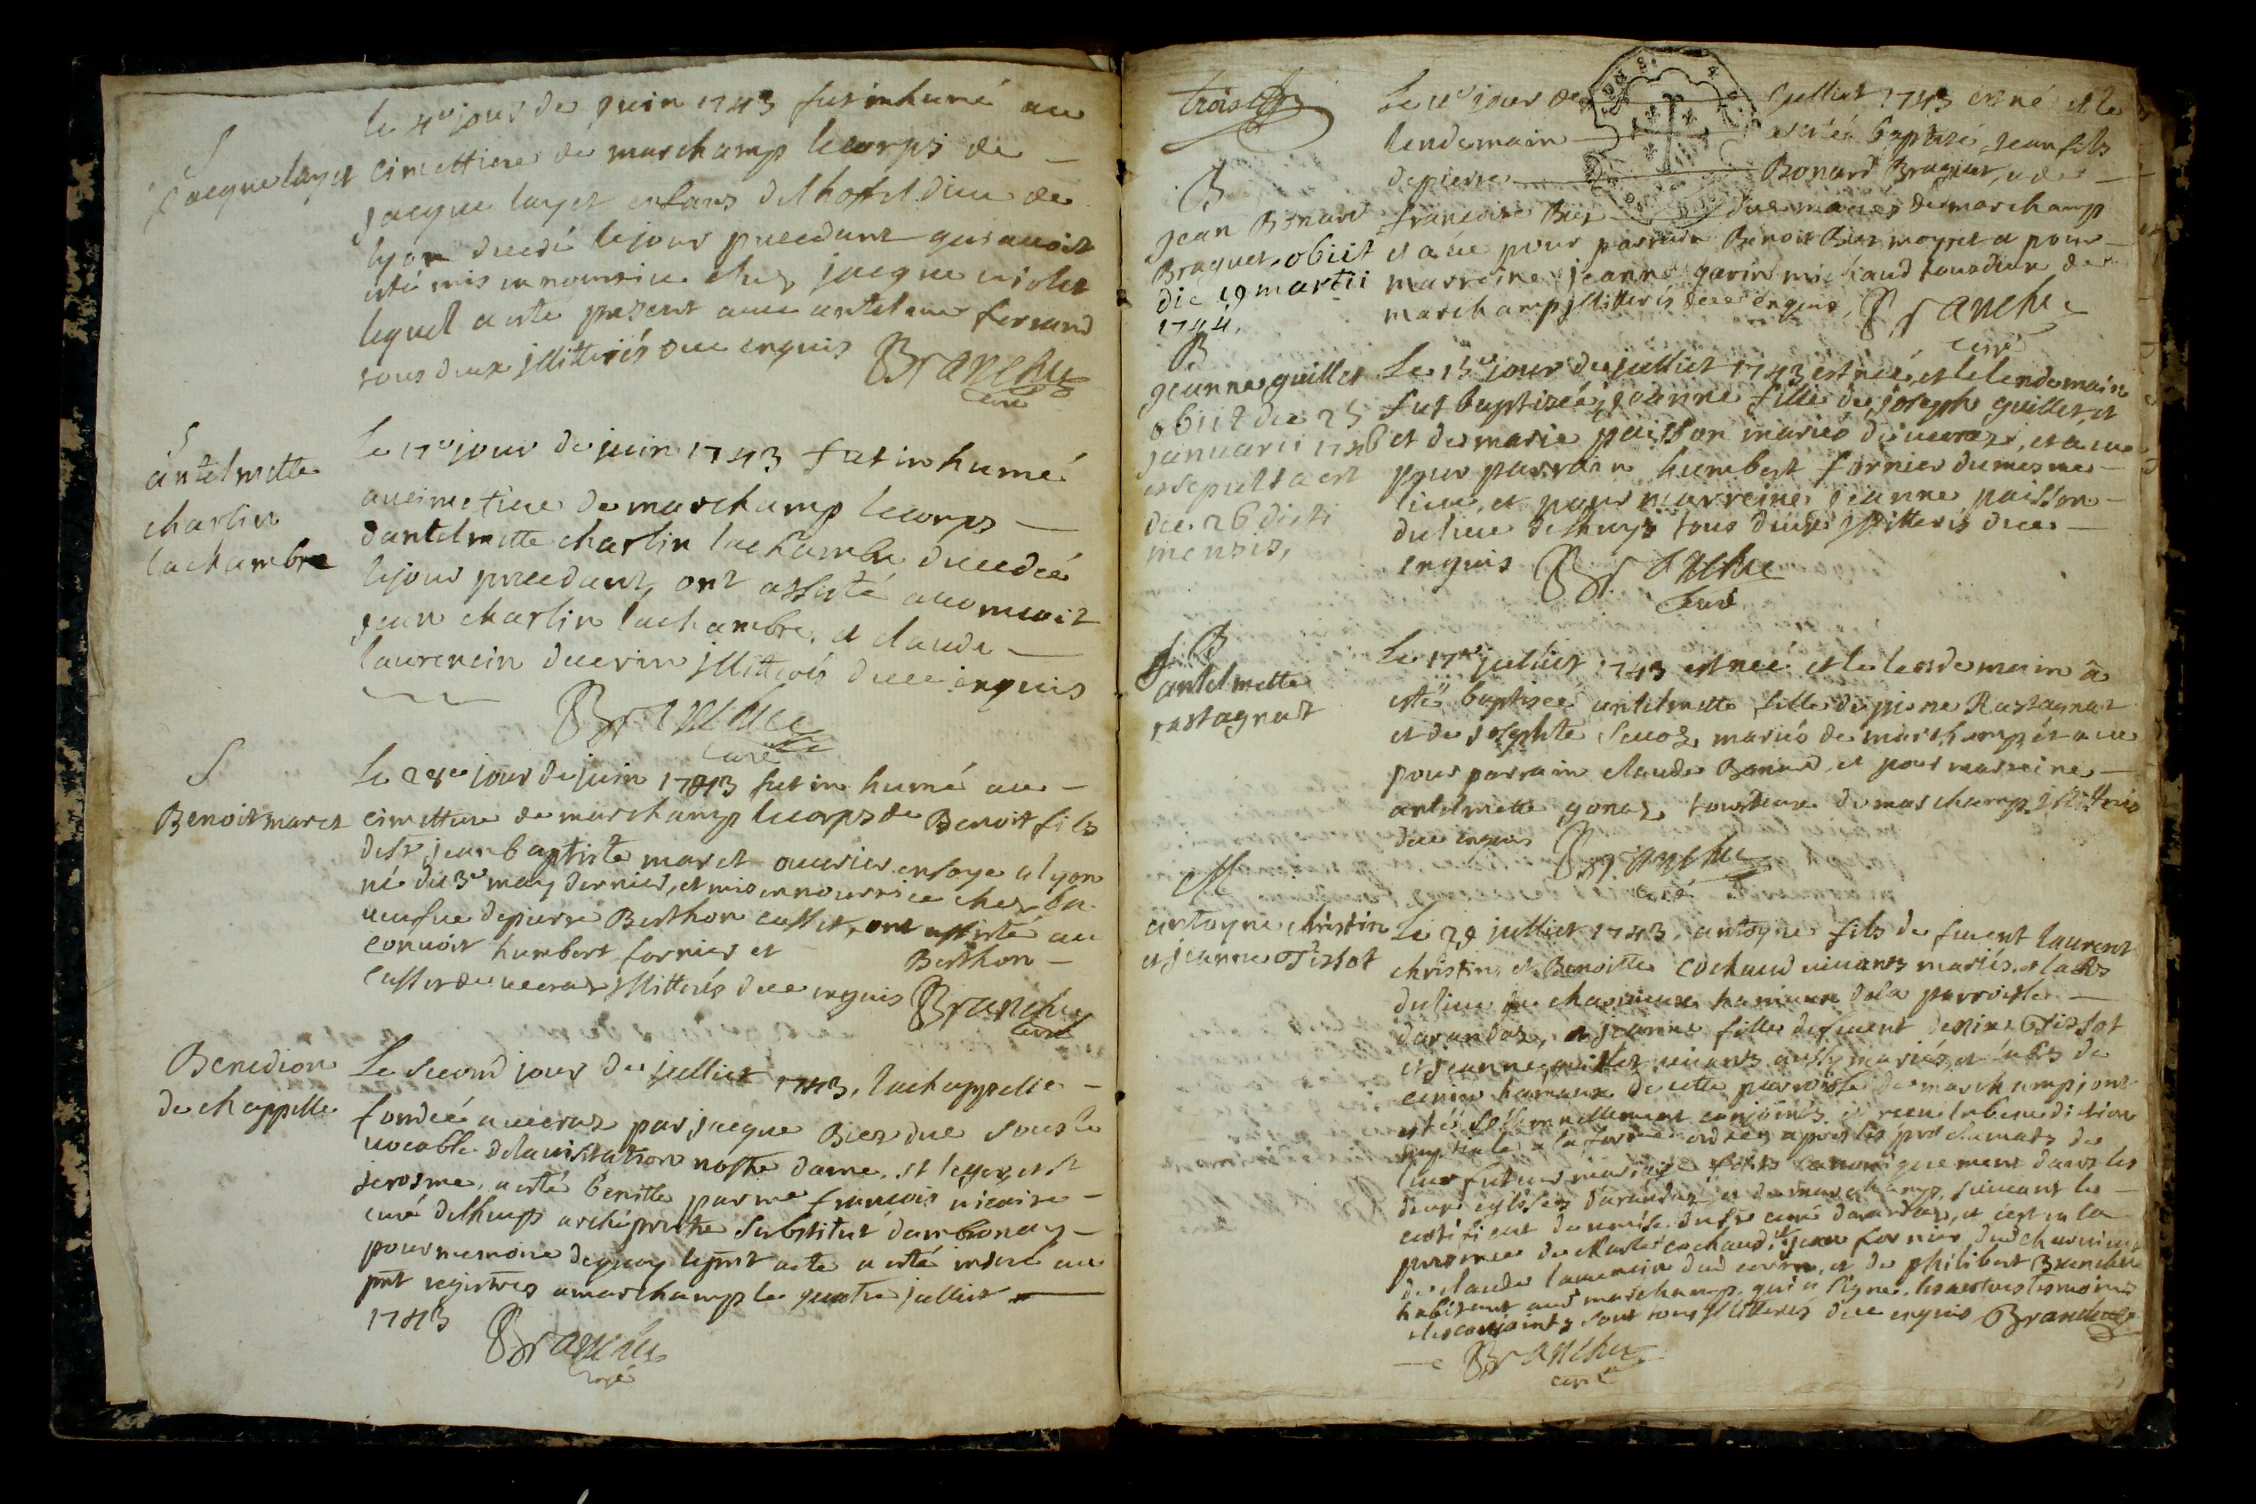 S
Jacque layet
le 4e jour de juin 1743 fut inhumé au
cimettiere de marchamp le corps de
jacque layet enfans de lhotel dieu de
lyon decedé le jour precedant qui avoit
esté mis en nourrice chez jacque violet
lequel a esté present avec antelme ferrand
tous deux illitterés de ce enquis Branche
curé
S
antelmette
charlin
lachambre
Le 17e jour de juin 1743 fut inhumé
au cimetiere de marchamp le corps
dantelmette charlin lachambre decedée
le jour precedant, ont assisté au convoit
jean charlin lachambre, et claude
laurencin illitterés de ce enquis
Branche
curé
S
Benoit maret
Le 28e jour de juin 1743 fut inhumé au
cimettiere de marchamp le corps de Benoit fils
de sr jean baptiste maret ouvrier en soye a lyon
né du 3e may dernier, et mis en nourrice chez la
veufve de pierre Berthon cusset, ont assisté au
convoit humbert fornier et Berthon
cusset de illitterés de ce enquis Branche
curé
Benedion
de chappelle
Le second jour de julliet 1743, la chappelle
fondée a ceraz par jacque Biez due sous le
vocable de la visitation nostre dame, st leger, et st
jerosme, a esté benitte par me francois vicaire
curé de lhuys archiprestre substitut dambronay
pour memoire de quoy le pnt acte a esté inseré au
pnt registres a marchamp le quatre julliet
1743 Branche
curé
trois
B
jean Bonard
Braguet, obiit
die 19 martii
1744.
Le 11e jour de julliet 1743 est né et le
lendemain a esté baptisé, jean fils
de pierre Bonard Braguet, et de
francoise Biez due mariés de marchamp
et a eu pour parrain Benoit Biez moynet a pour
marreine jeanne garin michaud tous deux de
marchamp illitterés de ce enquis, Branche
curé
B
jeanne guillet
obiit die 25
januarii 1746
et sepulta est
die 26 dicti
mensis,
Le 15e jour de julliet 1743 est née, et le lendemain
fut baptisée, jeanne fille de joseph guillet et
et de marie paisson mariés de ceraz, et a eu
pour parrain humbert fornier du mesme
lieu, et pour marreine jeanne paisson
du lieu de lhuys tous deux illitterés de ce
enquis Branche
curé
B
antelmette
rastagnat
Le 17e julliet 1743 est née et le lendemain a
esté baptisée antelmette fille de pierre Rastagnat
et de josephte mariés de marchamp et a eu
pour parrain claude Bonard, et pour marreine
antelmette gonaz, tous deux de marchamp illitterés
de ce enquis Branche
curé
M
antoyne christin
et jeanne Tissot
Le 29 julliet 1743, antoyne fils de fuent laurent
christin, et Benoitte cochaud vivants mariés et
du lieu de hameau de la parroisse
darandaz, et jeanne fille de fuent Tissot
et jeanne vivants aussy mariés, et de
hameau de cette parroisse de marchamp, ont
estés solemnellement conjoints, et receu la benediction
nuptiale, a la forme ordre, apres les proclamats de
leur futeur mariage faits canoniquement dans les
deux eglises darandaz et de marchamp, suivant le
certificat de du sr curé darandaz, et c'est en la
presence de cochaud, et jean fornier dud
de claude laurencin dud cerin, et de philibert Branche
habitant aud marchamp, qui a signé, les autres tesmoins
et les conjoints sont tous illitterés de ce enquis Branche
Branche
curé